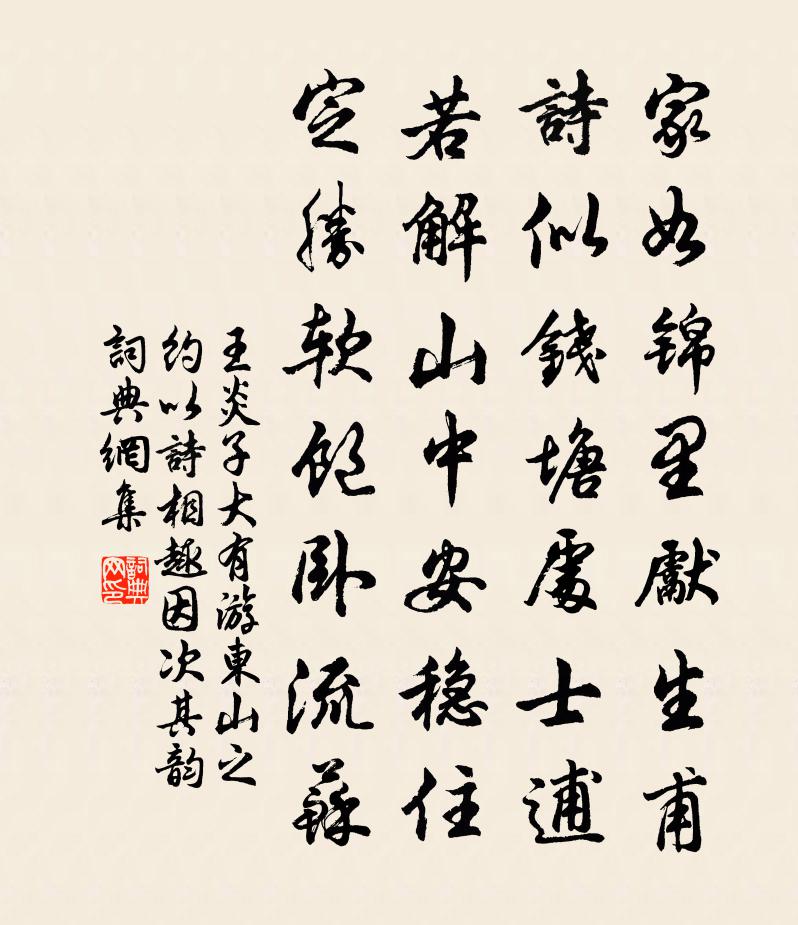 家如錦里獻生甫
詩似錢塘處士逋
若解山中安穏住
定勝軟飽臥流蘇
王炎子大有游東山之
約以詩相趣因次其韵
詞典網集
詞典
网印